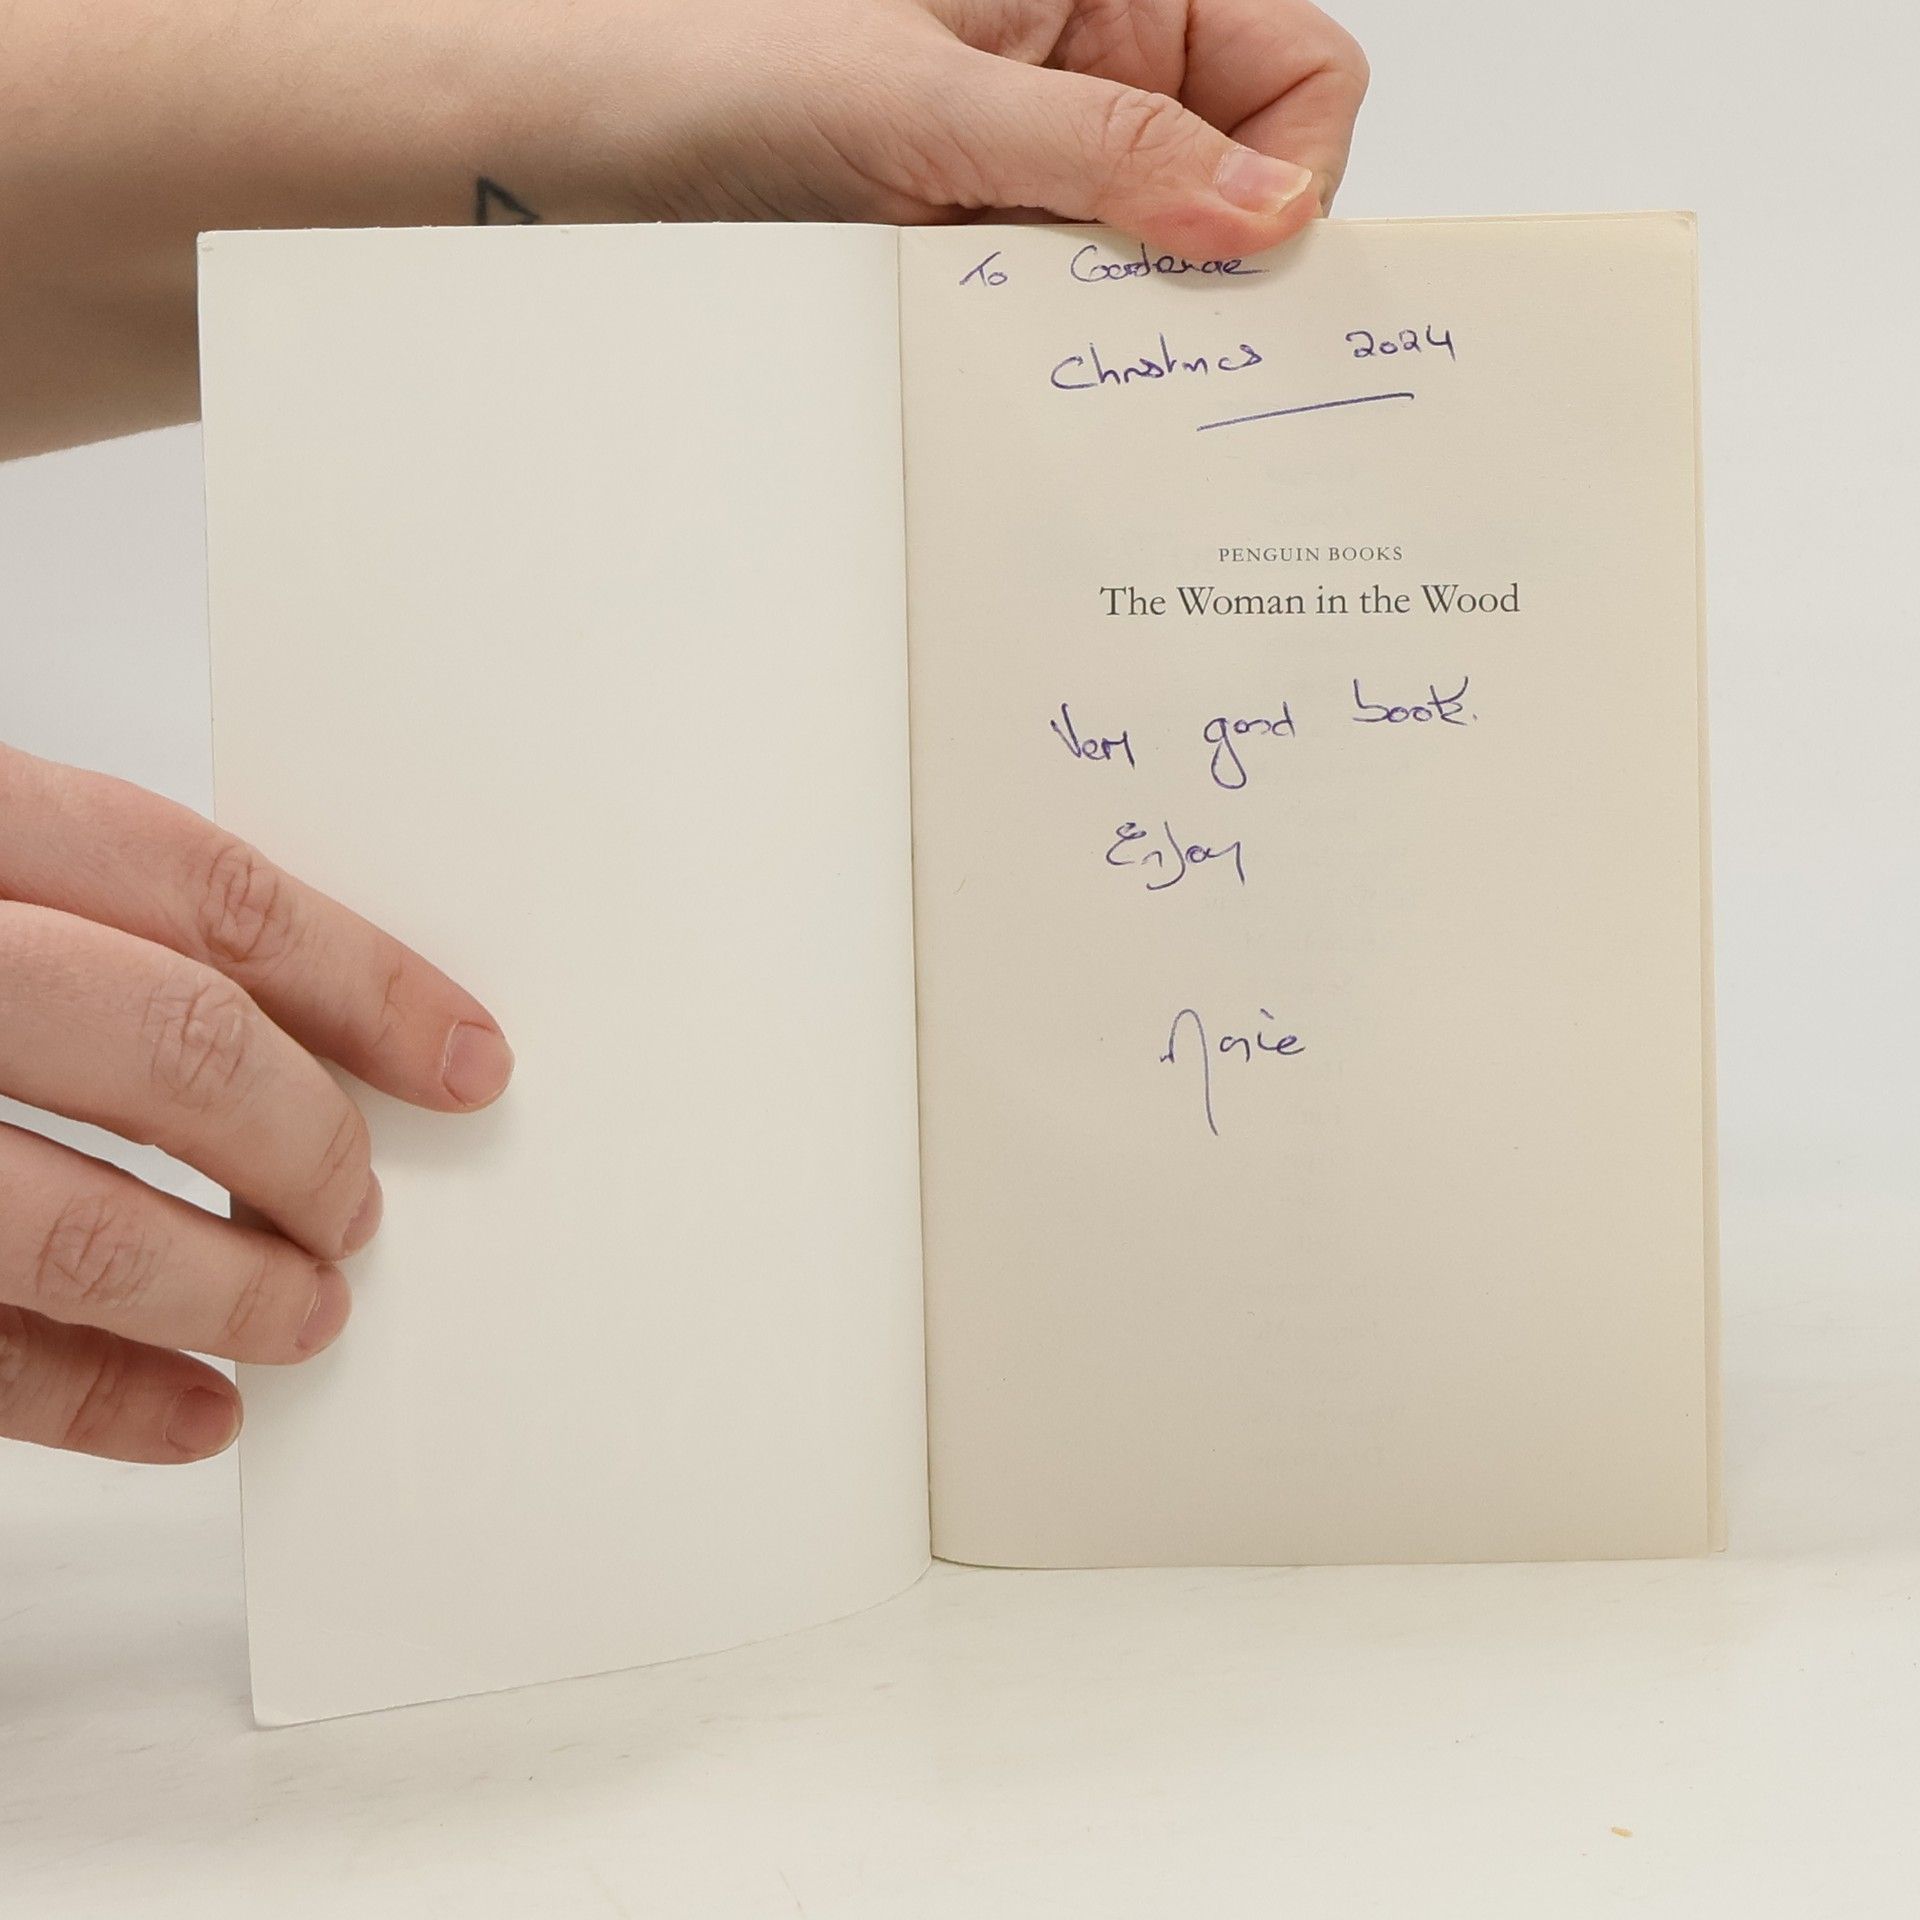 To
Christmas 2024
PENGUIN BOOKS
The Woman in the Wood
Very good book.
Enjoy
Marie